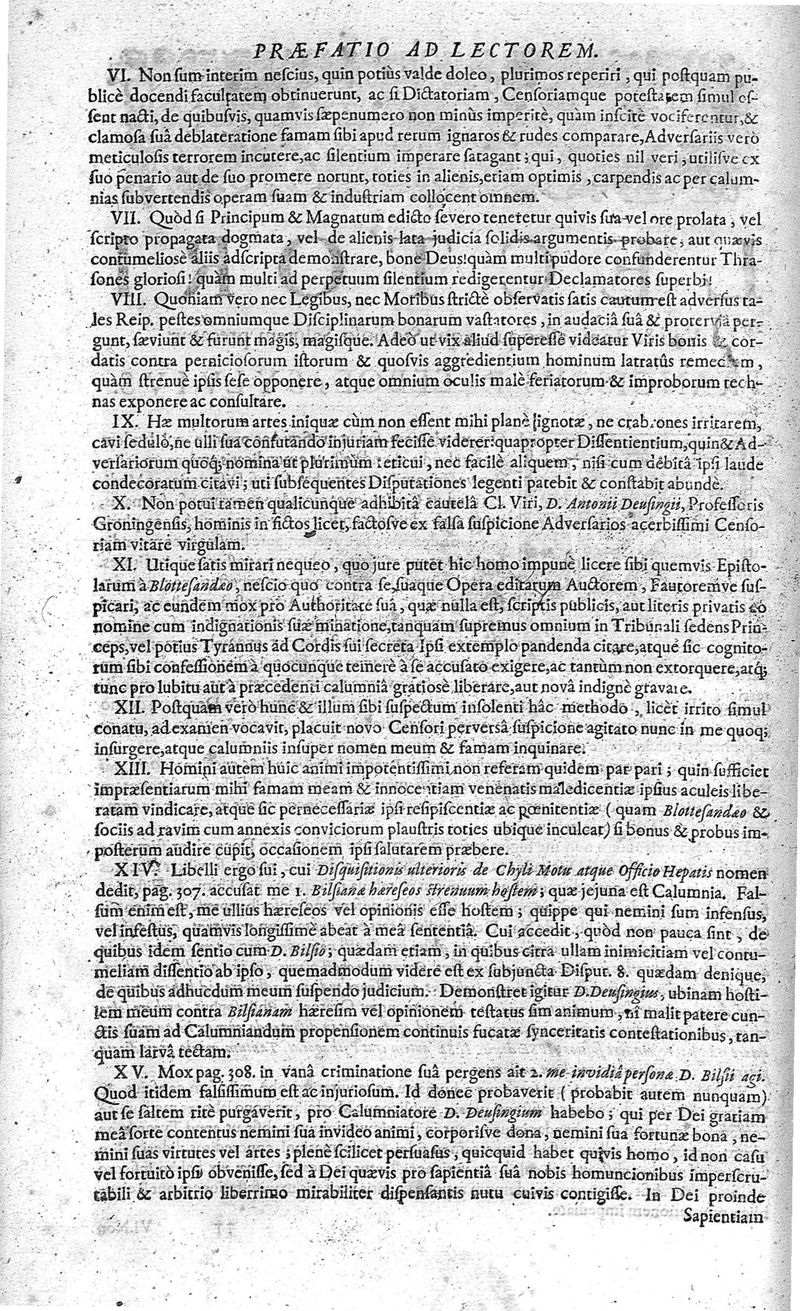 PRÆFATIO AD LECTOREM.
VI. Non sum interim nescius, quin potiùs valde doleo, plurimos reperiri, qui postquam pu-
blicè docendi facultatem obtinuerunt, ac si Dictatoriam, Censoriamque potestatem simul es-
sent nacti, de quibusvis, quamvis sæpenumero non minùs imperitè, quàm inscitè vociferentur, &
clamosa suâ deblateratione famam sibi apud rerum ignaros & rudes comparare, Adversariis verò
meticulosis terrorem incutere, ac silentium imperare satagant; qui, quoties nil veri, utilisve ex
suo penario aut de suo promere norunt, toties in alienis, etiam optimis, carpendis ac per calum-
nias subvertendis operam suam & industriam collocent omnem.
VII. Quòd si Principum & Magnatum edicto severo teneretur quivis sua vel ore prolata, vel
scripto propagata dogmata, vel de alienis lata judicia solidis argumentis probare, aut quævis
contumeliosè aliis adscripta demonstrare, bone Deus! quàm multi pudore confunderentur Thra-
sones gloriosi! quàm multi ad perpetuum silentium redigerentur Declamatores superbi!
VIII. Quoniam vero nec Legibus, nec Moribus strictè observatis satis cautum est adversus ta-
les Reip. pestes omniumque Disciplinarum bonarum vastatores, in audaciâ suâ & protervia per-
gunt, sæviunt & furunt magis, magisque. Adeo ut vix aliud superesse videatur Viris bonis & cor-
datis contra perniciosorum istorum & quosvis aggredientium hominum latratûs remedium,
quàm strenuè ipsis sese opponere, atque omnium oculis malè feriatorum & improborum tech-
nas exponere ac consultare.
IX. Hæ multorum artes iniquæ cùm non essent mihi planè ignotæ, ne crabrones irritarem,
cavi sedulò, ne ulli sua confutando injuriam fecisse viderer: quapropter Dissentientium, quin & Ad-
versariorum quoq; nomina ut plurimùm reticui, nec facilè aliquem, nisi cum debitâ ipsi laude
condecoratum citavi; uti subsequentes Disputationes legenti patebit & constabit abundè.
X. Non potui tamen qualicunque adhibitâ cautelâ Cl. Viri, D. Antonii Deusingii, Professoris
Groningensis, hominis in fictos licet, factosve ex falsa suspicione Adversarios acerbissimi Censo-
riam vitare virgulam.
XI. Utique satis mirari nequeo, quo jure putet hic homo impunè licere sibi quemvis Episto-
larum à Blottesandæo, nescio quo contra se, suaque Opera editarum Auctorem, Fautoremve sus-
picari, ac eundem mox pro Authoritate suâ, quæ nulla est, scriptis publicis, aut literis privatis eo
nomine cum indignationis suæ minatione, tanquam supremus omnium in Tribunali sedens Prin-
ceps, vel potius Tyrannus ad Cordis sui secreta ipsi extemplo pandenda citare, atque sic cognito-
rum sibi confessionem à quocunque temerè à se accusato exigere, ac tantum non extorquere, atq;
tunc pro lubitu aut à præcedenti calumniâ gratiosè liberare, aut novâ indignè gravare.
XII. Postquam verò hunc & illum sibi suspectum insolenti hâc methodo, licèt irrito simul
conatu, ad examen vocavit, placuit novo Censori perversâ suspicione agitato nunc in me quoq;
insurgere, atque calumniis insuper nomen meum & famam inquinare.
XIII. Homini autem huic animi impotentissimi non referam quidem par pari; quin sufficiet
impræsentiarum mihi famam meam & innocentiam venenatis maledicentiæ ipsius aculeis libe-
ratam vindicare, atque sic pernecessariæ ipsi resipiscentiæ ac pœnitentiæ (quam Blottesandæo &
sociis ad ravim cum annexis conviciorum plaustris toties ubique inculcat) si bonus & probus im-
posterum audire cupit, occasionem ipsi salutarem præbere.
XIV. Libelli ergo sui, cui Disquisitionis ulterioris de Chyli Motu atque Officio Hepatis nomen
dedit, pag. 307. accusat me 1. Bilsianæ hæreseos strenuum hostem; quæ jejuna est Calumnia. Fal-
sum enim est, me ullius hæreseos vel opinionis esse hostem; quippe qui nemini sum infensus,
vel infestus, quamvis longissimè abeat à meâ sententiâ. Cui accedit, quòd non pauca sint, de
quibus idem sentio cum D. Bilsio; quædam etiam, in quibus citra ullam inimicitiam vel contu-
meliam dissentio ab ipso, quemadmodum videre est ex subjuncta Disput. 8. quædam denique,
de quibus adhucdum meum suspendo judicium. Demonstret igitur D. Deusingius, ubinam hosti-
lem meum contra Bilsianam hæresim vel opinionem testatus sim animum, ni malit patere cun-
ctis suam ad Calumniandum propensionem continuis fucatæ synceritatis contestationibus, tan-
quam larvâ tectam.
XV. Mox pag. 308. in vanâ criminatione suâ pergens ait 2. me invidiâ personæ D. Bilsii agi.
Quod itidem falsissimum est ac injuriosum. Id donec probaverit (probabit autem nunquam)
aut se saltem ritè purgaverit, pro Calumniatore D. Deusingium habebo; qui per Dei gratiam
meâ sorte contentus nemini sua invideo animi, corporisve dona, nemini sua fortunæ bona, ne-
mini suas virtutes vel artes; plenè scilicet persuasus, quicquid habet quivis homo, id non casu
vel fortuitò ipsi obvenisse, sed à Dei quævis pro sapientiâ suâ nobis homuncionibus imperscru-
tabili & arbitrio liberrimo mirabiliter dispensantis nutu cuivis contigisse. In Dei proinde
Sapientiam